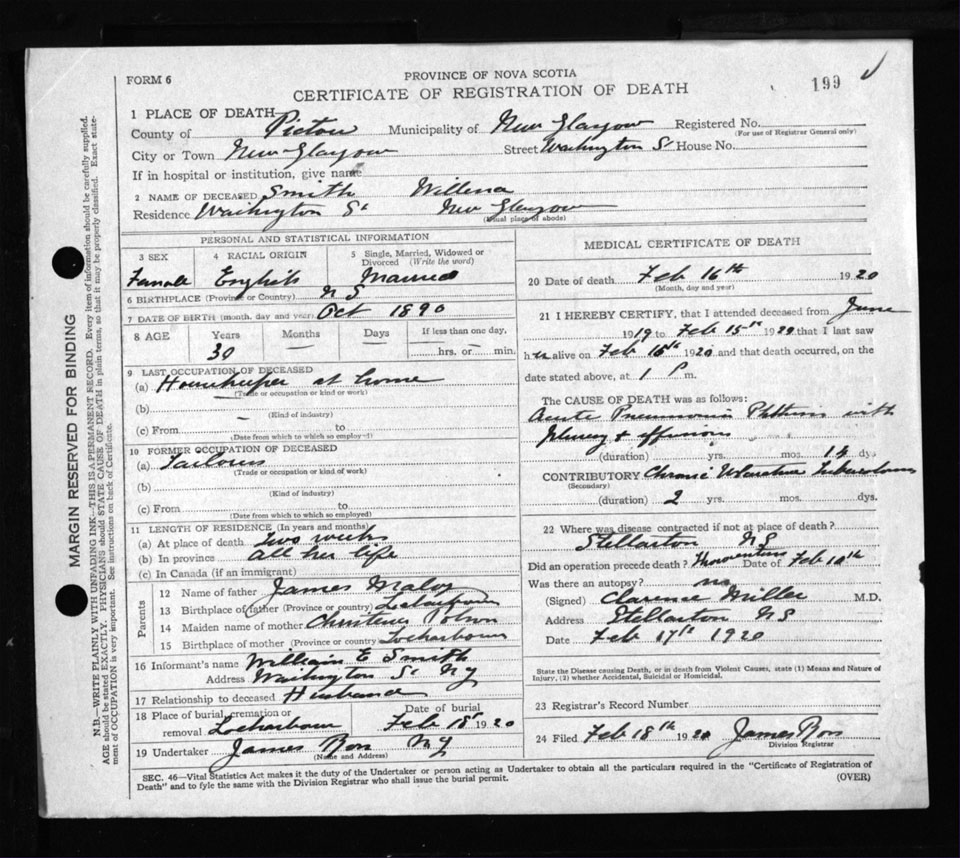 FORM 6
PROVINCE OF NOVA SCOTIA
CERTIFICATE OF REGISTRATION OF DEATH
199
1 PLACE OF DEATH—
County of Pictou Municipality of New Glasgow Registered No.
(For use of Registrar General only)
City or Town New Glasgow Street Washington St House No.
If in hospital or institution, give name
2 NAME OF DECEASED Smith Willena
Residence Washington St New Glasgow
(Usual place of abode)
PERSONAL AND STATISTICAL INFORMATION
3 SEX Female
4 RACIAL ORIGIN English
5 Single, Married, Widowed or Divorced (Write the word) Married
6 BIRTHPLACE (Province or Country) N S
7 DATE OF BIRTH (month, day and year) Oct 1890
8 AGE Years 30 Months — Days — If less than one day. hrs. or min.
9 LAST OCCUPATION OF DECEASED
(a) Housekeeper at home
(Trade or occupation or kind or work)
(b) —
(Kind of industry)
(c) From to
(Date from which to which so employed)
10 FORMER OCCUPATION OF DECEASED
(a)
(Trade or occupation or kind of work)
(b)
(Kind of industry)
(c) From to
(Date from which to which so employed)
11 LENGTH OF RESIDENCE (In years and months)
(a) At place of death Two weeks
(b) In province All her life
(c) In Canada (if an immigrant)
Parents
12 Name of father James
13 Birthplace of father (Province or country)
14 Maiden name of mother Polson
15 Birthplace of mother (Province or country)
16 Informant's name William E Smith
Address Washington St N G
17 Relationship to deceased Husband
18 Place of burial, cremation or removal
Date of burial Feb 18 1920
19 Undertaker James Ross N G
(Name and Address)
MEDICAL CERTIFICATE OF DEATH
20 Date of death Feb 16th 1920
(Month, day and year)
21 I HEREBY CERTIFY, that I attended deceased from June
1919 to Feb 15th 1920 that I last saw
h er alive on Feb 1920 and that death occurred, on the
date stated above, at 1 P m.
The CAUSE OF DEATH was as follows:
Acute Pneumonic Phthisis with
pleurisy & effusion
(duration) yrs. mos. 14 dys.
CONTRIBUTORY Chronic Tuberculosis
(Secondary)
(duration) 2 yrs. mos. dys.
22 Where was disease contracted if not at place of death?
Stellarton N S
Did an operation precede death? Date of Feb
Was there an autopsy? no
(Signed) Clarence Miller M.D.
Address Stellarton N S
Date Feb 17th 1920
State the Disease causing Death, or in death from Violent Causes, state (1) Means and Nature of
Injury, (2) whether Accidental, Suicidal or Homicidal.
23 Registrar's Record Number
24 Filed Feb 18th 1920 James Ross
Division Registrar
SEC. 46—Vital Statistics Act makes it the duty of the Undertaker or person acting as Undertaker to obtain all the particulars required in the "Certificate of Registration of
Death" and to fyle the same with the Division Registrar who shall issue the burial permit.
(OVER)
MARGIN RESERVED FOR BINDING
N.B.—WRITE PLAINLY WITH UNFADING INK—THIS IS A PERMANENT RECORD. Every item of information should be carefully supplied.
AGE should be stated EXACTLY. PHYSICIANS should STATE CAUSE OF DEATH in plain terms, so that it may be properly classified. Exact state-
ment of OCCUPATION is very important. See instructions on back of Certificate.